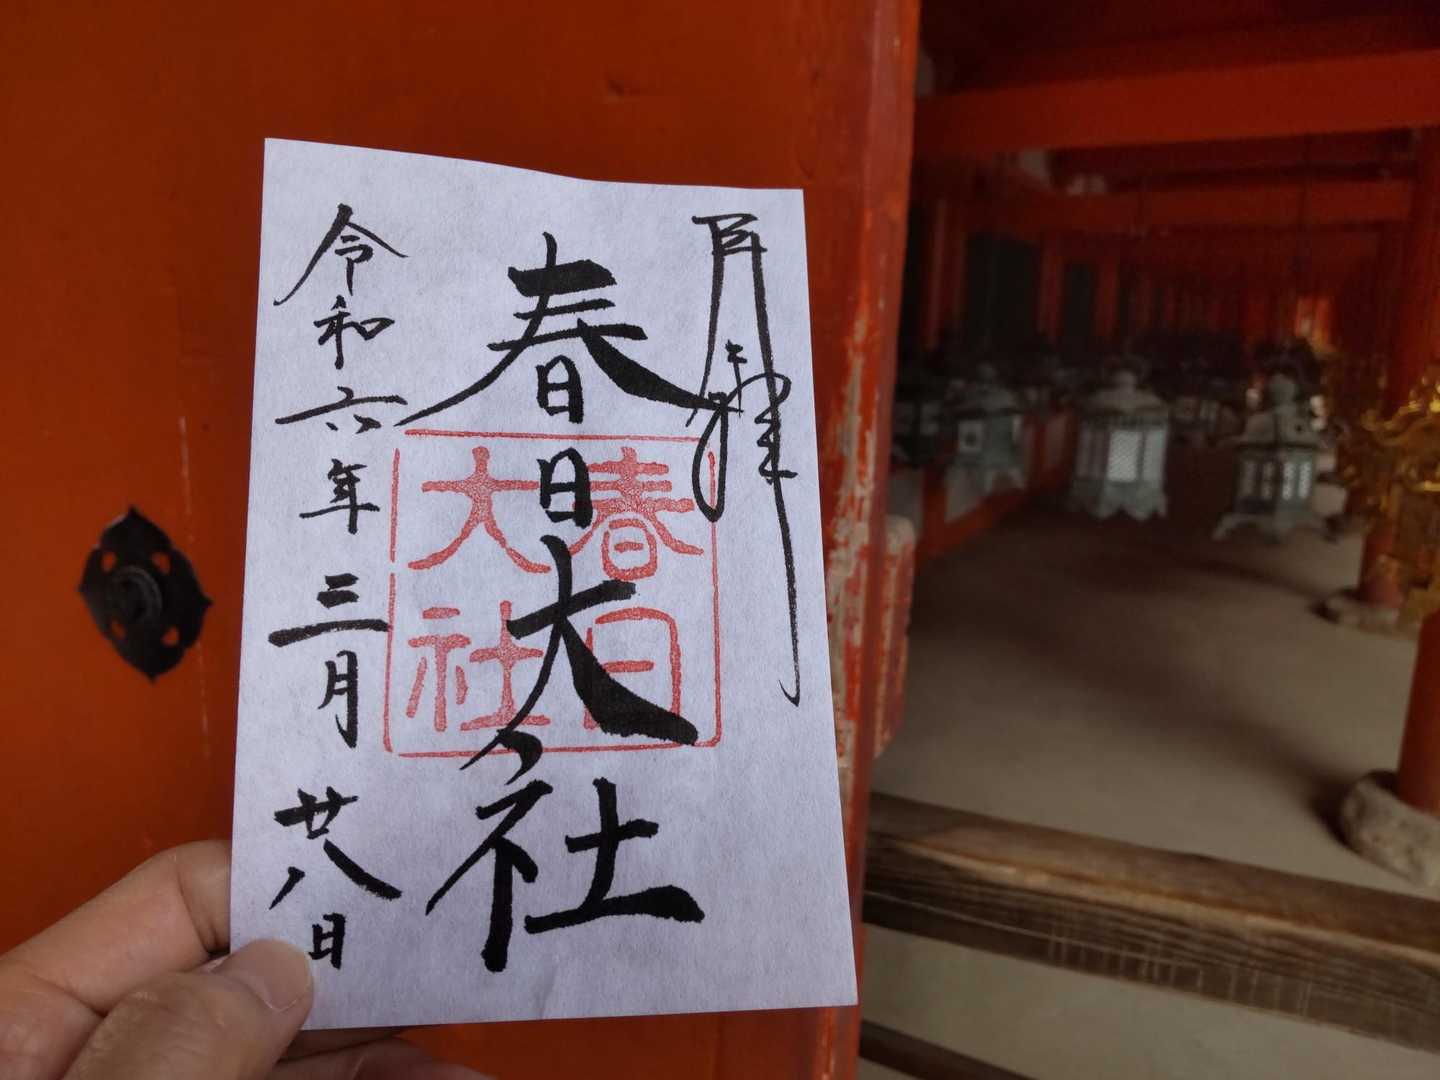 奉拝
春日大社
春日
大社
令和六年三月廿八日